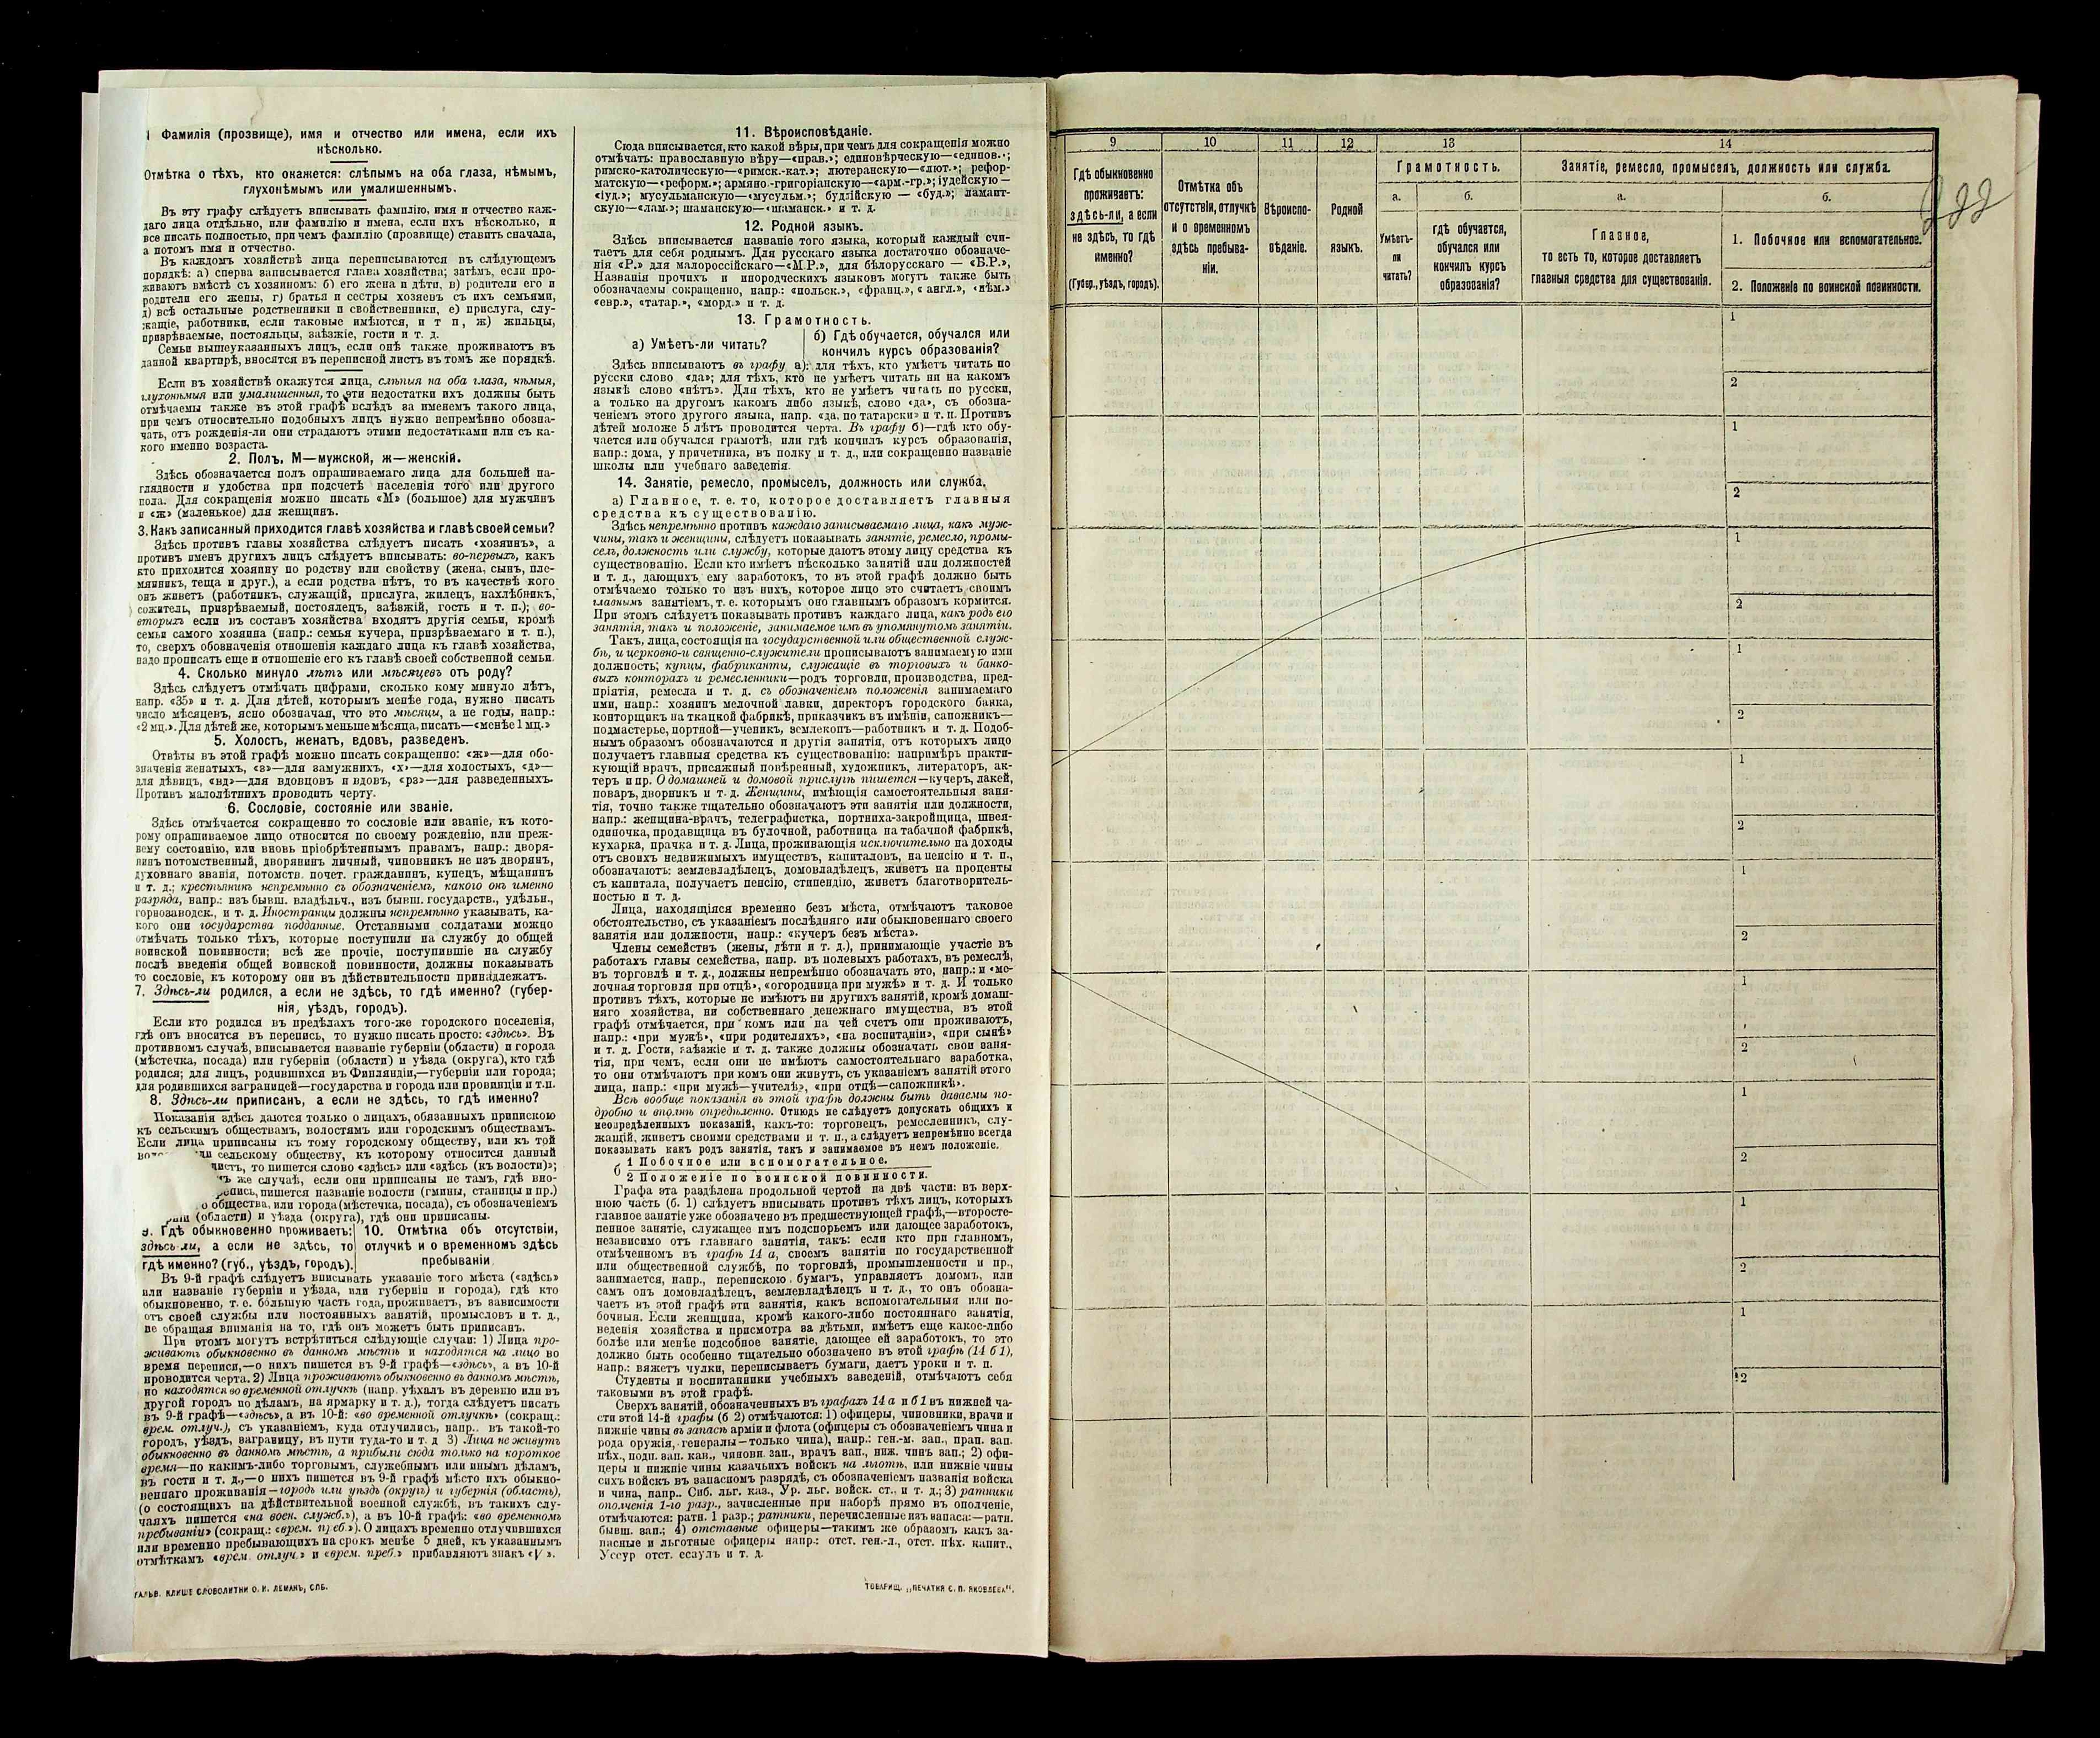 1 Фамилія (прозвище), имя и отчество или имена, если ихъ
нѣсколько.
Отмѣтка о тѣхъ, кто окажется: слѣпымъ на оба глаза, нѣмымъ,
глухонѣмымъ или умалишеннымъ.
Въ эту графу слѣдуетъ вписывать фамилію, имя и отчество каж-
даго лица отдѣльно, или фамилію и имена, если ихъ нѣсколько, и
все писать полностью, при чемъ фамилію (прозвище) ставить сначала,
а потомъ имя и отчество.
Въ каждомъ хозяйствѣ лица переписываются въ слѣдующемъ
порядкѣ: а) сперва записывается глава хозяйства; затѣмъ, если про-
живаютъ вмѣстѣ съ хозяиномъ: б) его жена и дѣти, в) родители его и
родители его жены, г) братья и сестры хозяевъ съ ихъ семьями,
д) всѣ остальные родственники и свойственники, е) прислуга, слу-
жащіе, работники, если таковые имѣются, и т п, ж) жильцы,
призрѣваемые, постояльцы, заѣзжіе, гости и т. д.
Семьи вышеуказанныхъ лицъ, если онѣ также проживаютъ въ
данной квартирѣ, вносятся въ переписной листъ въ томъ же порядкѣ.
Если въ хозяйствѣ окажутся лица, слѣпыя на оба глаза, нѣмыя,
глухонѣмыя или умалишенныя, то эти недостатки ихъ должны быть
отмѣчаемы также въ этой графѣ вслѣдъ за именемъ такого лица,
при чемъ относительно подобныхъ лицъ нужно непремѣнно обозна-
чать, отъ рожденія-ли они страдаютъ этими недостатками или съ ка-
кого именно возраста.
2. Полъ. М—мужской, ж—женскій.
Здѣсь обозначается полъ опрашиваемаго лица для большей на-
глядности и удобства при подсчетѣ населенія того или другого
пола. Для сокращенія можно писать «М» (большое) для мужчинъ
и «ж» (маленькое) для женщинъ.
3. Какъ записанный приходится главѣ хозяйства и главѣ своей семьи?
Здѣсь противъ главы хозяйства слѣдуетъ писать «хозяинъ», а
противъ именъ другихъ лицъ слѣдуетъ вписывать: во-первыхъ, какъ
кто приходится хозяину по родству или свойству (жена, сынъ, пле-
мянникъ, теща и друг.), а если родства нѣтъ, то въ качествѣ кого
онъ живетъ (работникъ, служащій, прислуга, жилецъ, нахлѣбникъ,
сожитель, призрѣваемый, постоялецъ, заѣзжій, гость и т. п.); во-
вторыхъ если въ составъ хозяйства входятъ другія семьи, кромѣ
семьи самого хозяина (напр.: семья кучера, призрѣваемаго и т. п.),
то, сверхъ обозначенія отношенія каждаго лица къ главѣ хозяйства,
надо прописать еще и отношеніе его къ главѣ своей собственной семьи.
4. Сколько минуло лѣтъ или мѣсяцевъ отъ роду?
Здѣсь слѣдуетъ отмѣчать цифрами, сколько кому минуло лѣтъ,
напр. «35» и т. д. Для дѣтей, которымъ менѣе года, нужно писать
число мѣсяцевъ, ясно обозначая, что это мѣсяцы, а не годы, напр.:
«2 мц.». Для дѣтей же, которымъ меньше мѣсяца, писать—«менѣе 1 мц.»
5. Холостъ, женатъ, вдовъ, разведенъ.
Отвѣты въ этой графѣ можно писать сокращенно: «ж»—для обо-
значенія женатыхъ, «з»—для замужнихъ, «х»—для холостыхъ, «д»—
для дѣвицъ, «вд»—для вдовцовъ и вдовъ, «рз»—для разведенныхъ.
Противъ малолѣтнихъ проводить черту.
6. Сословіе, состояніе или званіе.
Здѣсь отмѣчается сокращенно то сословіе или званіе, къ кото-
рому опрашиваемое лицо относится по своему рожденію, или преж-
нему состоянію, или вновь пріобрѣтеннымъ правамъ, напр.: дворя-
нинъ потомственный, дворянинъ личный, чиновникъ не изъ дворянъ,
духовнаго званія, потомств. почет. гражданинъ, купецъ, мѣщанинъ
и т. д.; крестьянинъ непремѣнно съ обозначеніемъ, какого онъ именно
разряда, напр.: изъ бывш. владѣльч., изъ бывш. государств., удѣльн.,
горнозаводск., и т. д. Иностранцы должны непремѣнно указывать, ка-
кого они государства подданные. Отставными солдатами можно
отмѣчать только тѣхъ, которые поступили на службу до общей
воинской повинности; всѣ же прочіе, поступившіе на службу
послѣ введенія общей воинской повинности, должны показывать
то сословіе, къ которому они въ дѣйствительности принадлежатъ.
7. Здѣсь-ли родился, а если не здѣсь, то гдѣ именно? (губер-
нія, уѣздъ, городъ).
Если кто родился въ предѣлахъ того-же городского поселенія,
гдѣ онъ вносится въ перепись, то нужно писать просто: «здѣсь». Въ
противномъ случаѣ, вписывается названіе губерніи (области) и города
(мѣстечка, посада) или губерніи (области) и уѣзда (округа), кто гдѣ
родился; для лицъ, родившихся въ Финляндіи,—губерніи или города;
для родившихся заграницей—государства и города или провинціи и т.п.
8. Здѣсь-ли приписанъ, а если не здѣсь, то гдѣ именно?
Показанія здѣсь даются только о лицахъ, обязанныхъ припискою
къ сельскимъ обществамъ, волостямъ или городскимъ обществамъ.
Если лица приписаны къ тому городскому обществу, или къ той
сельскому обществу, къ которому относится данный
листъ, то пишется слово «здѣсь» или «здѣсь (къ волости)»;
же случаѣ, если они приписаны не тамъ, гдѣ вно-
пишется названіе волости (гмины, станицы и пр.)
о общества, или города (мѣстечка, посада), съ обозначеніемъ
(области) и уѣзда (округа), гдѣ они приписаны.
9. Гдѣ обыкновенно проживаетъ:
здѣсь ли, а если не здѣсь, то
гдѣ именно? (губ., уѣздъ, городъ).
10. Отмѣтка объ отсутствіи,
отлучкѣ и о временномъ здѣсь
пребываніи
Въ 9-й графѣ слѣдуетъ вписывать указаніе того мѣста («здѣсь»
или названіе губерніи и уѣзда, или губерніи и города), гдѣ кто
обыкновенно, т. е. бо́льшую часть года, проживаетъ, въ зависимости
отъ своей службы или постоянныхъ занятій, промысловъ и т. д.,
не обращая вниманія на то, гдѣ онъ можетъ быть приписанъ.
При этомъ могутъ встрѣтиться слѣдующіе случаи: 1) Лица про-
живаютъ обыкновенно въ данномъ мѣстѣ и находятся на лицо во
время переписи,—о нихъ пишется въ 9-й графѣ—«здѣсь», а въ 10-й
проводится черта. 2) Лица проживаютъ обыкновенно въ данномъ мѣстѣ,
но находятся во временной отлучкѣ (напр. уѣхалъ въ деревню или въ
другой городъ по дѣламъ, на ярмарку и т. д.), тогда слѣдуетъ писать
въ 9-й графѣ—«здѣсь», а въ 10-й: «во временной отлучкѣ» (сокращ.:
врем. отлуч.), съ указаніемъ, куда отлучились, напр.. въ такой-то
городъ, уѣздъ, заграницу, въ пути туда-то и т. д 3) Лица не живутъ
обыкновенно въ данномъ мѣстѣ, а прибыли сюда только на короткое
время—по какимъ-либо торговымъ, служебнымъ или инымъ дѣламъ,
въ гости и т. д.,—о нихъ пишется въ 9-й графѣ мѣсто ихъ обыкно-
веннаго проживанія—городъ или уѣздъ (округъ) и губернія (область),
(о состоящихъ на дѣйствительной военной службѣ, въ такихъ слу-
чаяхъ пишется «на воен. служб.»), а въ 10-й графѣ: «во временномъ
пребываніи» (сокращ.: «врем. преб.»). О лицахъ временно отлучившихся
или временно пребывающихъ на срокъ менѣе 5 дней, къ указаннымъ
отмѣткамъ «врем. отлуч.» и «врем. преб.» прибавляютъ знакъ «V».
ГАЛЬВ. КЛИШЕ СЛОВОЛИТНИ О. И. ЛЕМАНЪ, СПБ.
11. Вѣроисповѣданіе.
Сюда вписывается, кто какой вѣры, при чемъ для сокращенія можно
отмѣчать: православную вѣру—«прав.»; единовѣрческую—«единов.»;
римско-католическую—«римск.-кат.»; лютеранскую—«лют.»; рефор-
матскую—«реформ.»; армяно-григоріанскую—«арм.-гр.»; іудейскую—
«іуд.»; мусульманскую—«мусульм.»; буддійскую — «буд.»; ламаит-
скую—«лам.»; шаманскую—«шаманск.» и т. д.
12. Родной языкъ.
Здѣсь вписывается названіе того языка, который каждый счи-
таетъ для себя роднымъ. Для русскаго языка достаточно обозначе-
нія «Р.» для малороссійскаго—«М.Р.», для бѣлорусскаго — «Б.Р.»,
Названія прочихъ и инородческихъ языковъ могутъ также быть
обозначаемы сокращенно, напр.: «польск.», «франц.», « англ.», «нѣм.»
«евр.», «татар.», «морд.» и т. д.
13. Грамотность.
а) Умѣетъ-ли читать?
б) Гдѣ обучается, обучался или
кончилъ курсъ образованія?
Здѣсь вписываютъ въ графу а): для тѣхъ, кто умѣетъ читать по
русски слово «да»; для тѣхъ, кто не умѣетъ читать ни на какомъ
языкѣ слово «нѣтъ». Для тѣхъ, кто не умѣетъ читать по русски,
а только на другомъ какомъ либо языкѣ, слово «да», съ обозна-
ченіемъ этого другого языка, напр. «да, по татарски» и т. п. Противъ
дѣтей моложе 5 лѣтъ проводится черта. Въ графу б)—гдѣ кто обу-
чается или обучался грамотѣ, или гдѣ кончилъ курсъ образованія,
напр.: дома, у причетника, въ полку и т. д., или сокращенно названіе
школы или учебнаго заведенія.
14. Занятіе, ремесло, промыселъ, должность или служба.
а) Главное, т. е. то, которое доставляетъ главныя
средства къ существованію.
Здѣсь непремѣнно противъ каждаго записываемаго лица, какъ муж-
чины, такъ и женщины, слѣдуетъ показывать занятіе, ремесло, промы-
селъ, должность или службу, которые даютъ этому лицу средства къ
существованію. Если кто имѣетъ нѣсколько занятій или должностей
и т. д., дающихъ ему заработокъ, то въ этой графѣ должно быть
отмѣчаемо только то изъ нихъ, которое лицо это считаетъ своимъ
главнымъ занятіемъ, т. е. которымъ оно главнымъ образомъ кормится.
При этомъ слѣдуетъ показывать противъ каждаго лица, какъ родъ его
занятія, такъ и положеніе, занимаемое имъ въ упомянутомъ занятіи.
Такъ, лица, состоящія на государственной или общественной служ-
бѣ, и церковно-и священно-служители прописываютъ занимаемую ими
должность; купцы, фабриканты, служащіе въ торговыхъ и банко-
выхъ конторахъ и ремесленники—родъ торговли, производства, пред-
пріятія, ремесла и т. д. съ обозначеніемъ положенія занимаемаго
ими, напр.: хозяинъ мелочной лавки, директоръ городского банка,
конторщикъ на ткацкой фабрикѣ, приказчикъ въ имѣніи, сапожникъ—
подмастерье, портной—ученикъ, землекопъ—работникъ и т. д. Подоб-
нымъ образомъ обозначаются и другія занятія, отъ которыхъ лицо
получаетъ главныя средства къ существованію: напримѣръ практи-
кующій врачъ, присяжный повѣренный, художникъ, литераторъ, ак-
теръ и пр. О домашней и домовой прислугѣ пишется—кучеръ, лакей,
поваръ, дворникъ и т. д. Женщины, имѣющія самостоятельныя заня-
тія, точно также тщательно обозначаютъ эти занятія или должности,
напр.: женщина-врачъ, телеграфистка, портниха-закройщица, швея-
одиночка, продавщица въ булочной, работница на табачной фабрикѣ,
кухарка, прачка и т. д. Лица, проживающія исключительно на доходы
отъ своихъ недвижимыхъ имуществъ, капиталовъ, на пенсію и т. п.,
обозначаютъ: землевладѣлецъ, домовладѣлецъ, живетъ на проценты
съ капитала, получаетъ пенсію, стипендію, живетъ благотворитель-
ностью и т. д.
Лица, находящіяся временно безъ мѣста, отмѣчаютъ таковое
обстоятельство, съ указаніемъ послѣдняго или обыкновеннаго своего
занятія или должности, напр.: «кучеръ безъ мѣста».
Члены семействъ (жены, дѣти и т. д.), принимающіе участіе въ
работахъ главы семейства, напр. въ полевыхъ работахъ, въ ремеслѣ,
въ торговлѣ и т. д., должны непремѣнно обозначать это, напр.: и «ме-
лочная торговля при отцѣ», «огородница при мужѣ» и т. д. И только
противъ тѣхъ, которые не имѣютъ ни другихъ занятій, кромѣ домаш-
няго хозяйства, ни собственнаго денежнаго имущества, въ этой
графѣ отмѣчается, при комъ или на чей счетъ они проживаютъ,
напр.: «при мужѣ», «при родителяхъ», «на воспитаніи», «при сынѣ»
и т. д. Гости, заѣзжіе и т. д. также должны обозначать свои заня-
тія, при чемъ, если они не имѣютъ самостоятельнаго заработка,
то они отмѣчаютъ при комъ они живутъ, съ указаніемъ занятій этого
лица, напр.: «при мужѣ—учителѣ», «при отцѣ—сапожникѣ».
Всѣ вообще показанія въ этой графѣ должны быть даваемы по-
дробно и вполнѣ опредѣленно. Отнюдь не слѣдуетъ допускать общихъ и
неопредѣленныхъ показаній, какъ-то: торговецъ, ремесленникъ, слу-
жащій, живетъ своими средствами и т. п., а слѣдуетъ непремѣнно всегда
показывать какъ родъ занятія, такъ и занимаемое въ немъ положеніе.
б 1 Побочное или вспомогательное.
2 Положеніе по воинской повинности.
Графа эта раздѣлена продольной чертой на двѣ части: въ верх-
нюю часть (б. 1) слѣдуетъ вписывать противъ тѣхъ лицъ, которыхъ
главное занятіе уже обозначено въ предшествующей графѣ,—второсте-
пенное занятіе, служащее имъ подспорьемъ или дающее заработокъ,
независимо отъ главнаго занятія, такъ: если кто при главномъ,
отмѣченномъ въ графѣ 14 а, своемъ занятіи по государственной
или общественной службѣ, по торговлѣ, промышленности и пр.,
занимается, напр., перепискою бумагъ, управляетъ домомъ, или
самъ онъ домовладѣлецъ, землевладѣлецъ и т. д., то онъ обозна-
чаетъ въ этой графѣ эти занятія, какъ вспомогательныя или по-
бочныя. Если женщина, кромѣ какого-либо постояннаго занятія,
веденія хозяйства и присмотра за дѣтьми, имѣетъ еще какое-либо
болѣе или менѣе подсобное занятіе, дающее ей заработокъ, то это
должно быть особенно тщательно обозначено въ этой графѣ (14 б 1),
напр.: вяжетъ чулки, переписываетъ бумаги, даетъ уроки и т. п.
Студенты и воспитанники учебныхъ заведеній, отмѣчаютъ себя
таковыми въ этой графѣ.
Сверхъ занятій, обозначенныхъ въ графахъ 14 а и б1 въ нижней ча-
сти этой 14-й графы (б 2) отмѣчаются: 1) офицеры, чиновники, врачи и
нижніе чины въ запасѣ арміи и флота (офицеры съ обозначеніемъ чина и
рода оружія, генералы—только чина), напр.: ген.-м. зап., прап. зап.
пѣх., подп. зап. кав., чиновн. зап., врачъ зап., ниж. чинъ зап.; 2) офи-
церы и нижніе чины казачьихъ войскъ на льготѣ, или нижніе чины
сихъ войскъ въ запасномъ разрядѣ, съ обозначеніемъ названія войска
и чина, напр.. Сиб. льг. каз., Ур. льг. войск. ст., и т. д.; 3) ратники
ополченія 1-го разр., зачисленные при наборѣ прямо въ ополченіе,
отмѣчаются: ратн. 1 разр.; ратники, перечисленные изъ запаса:—ратн.
бывш. зап.; 4) отставные офицеры—такимъ же образомъ какъ за-
пасные и льготные офицеры напр.: отст. ген.-л., отст. пѣх. капит.,
Уссур отст. есаулъ и т. д.
ТОВАРИЩ. „ПЕЧАТНЯ С. П. ЯКОВЛЕВА".
9 10 11 12 13 14
Гдѣ обыкновенно
проживаетъ:
здѣсь-ли, а если
не здѣсь, то гдѣ
именно?
(Губер., уѣздъ, городъ).
Отмѣтка объ
отсутствіи, отлучкѣ
и о временномъ
здѣсь пребыва-
ніи.
Вѣроиспо-
вѣданіе.
Родной
языкъ.
Грамотность.
а.
Умѣетъ-
ли
читать?
б.
гдѣ обучается,
обучался или
кончилъ курсъ
образованія?
Занятіе, ремесло, промыселъ, должность или служба.
а.
Главное,
то есть то, которое доставляетъ
главныя средства для существованія.
б.
1. Побочное или вспомогательное.
2. Положеніе по воинской повинности.
1
2
1
2
1
2
1
2
1
2
1
2
1
2
1
2
1
2
1
2